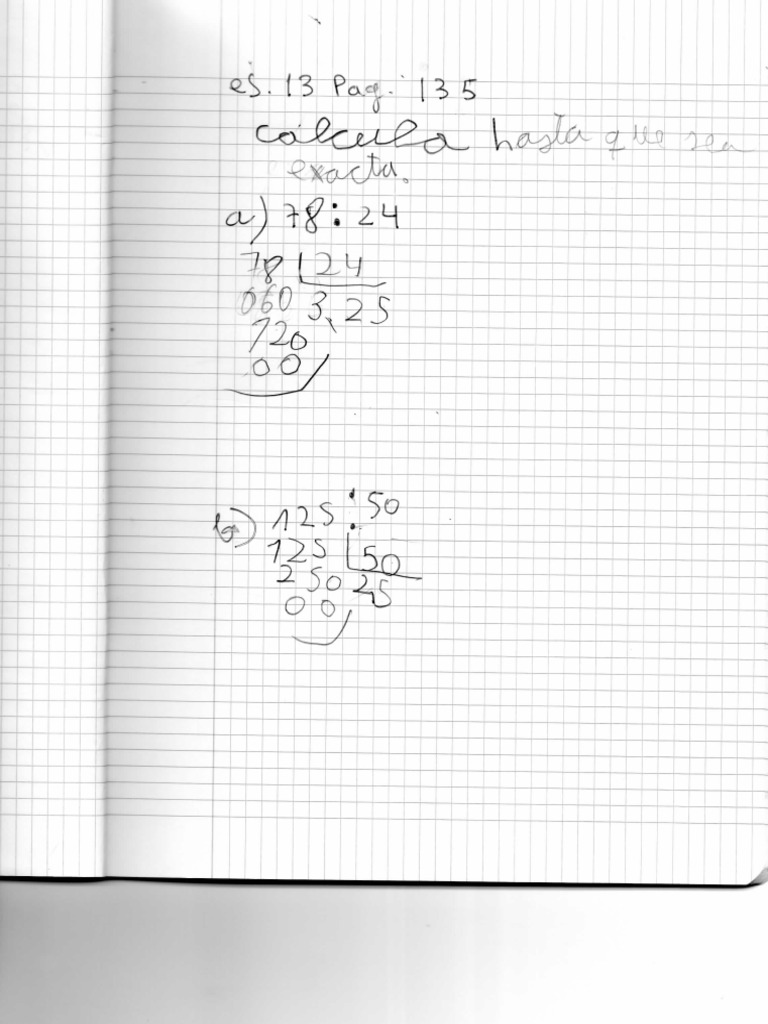 es. 13 Pag. 135
calcula hasta que sea
exacta.
a) 78 : 24
78 24
060 3,25
120
00
b) 125 : 50
125 50
250 2,5
00